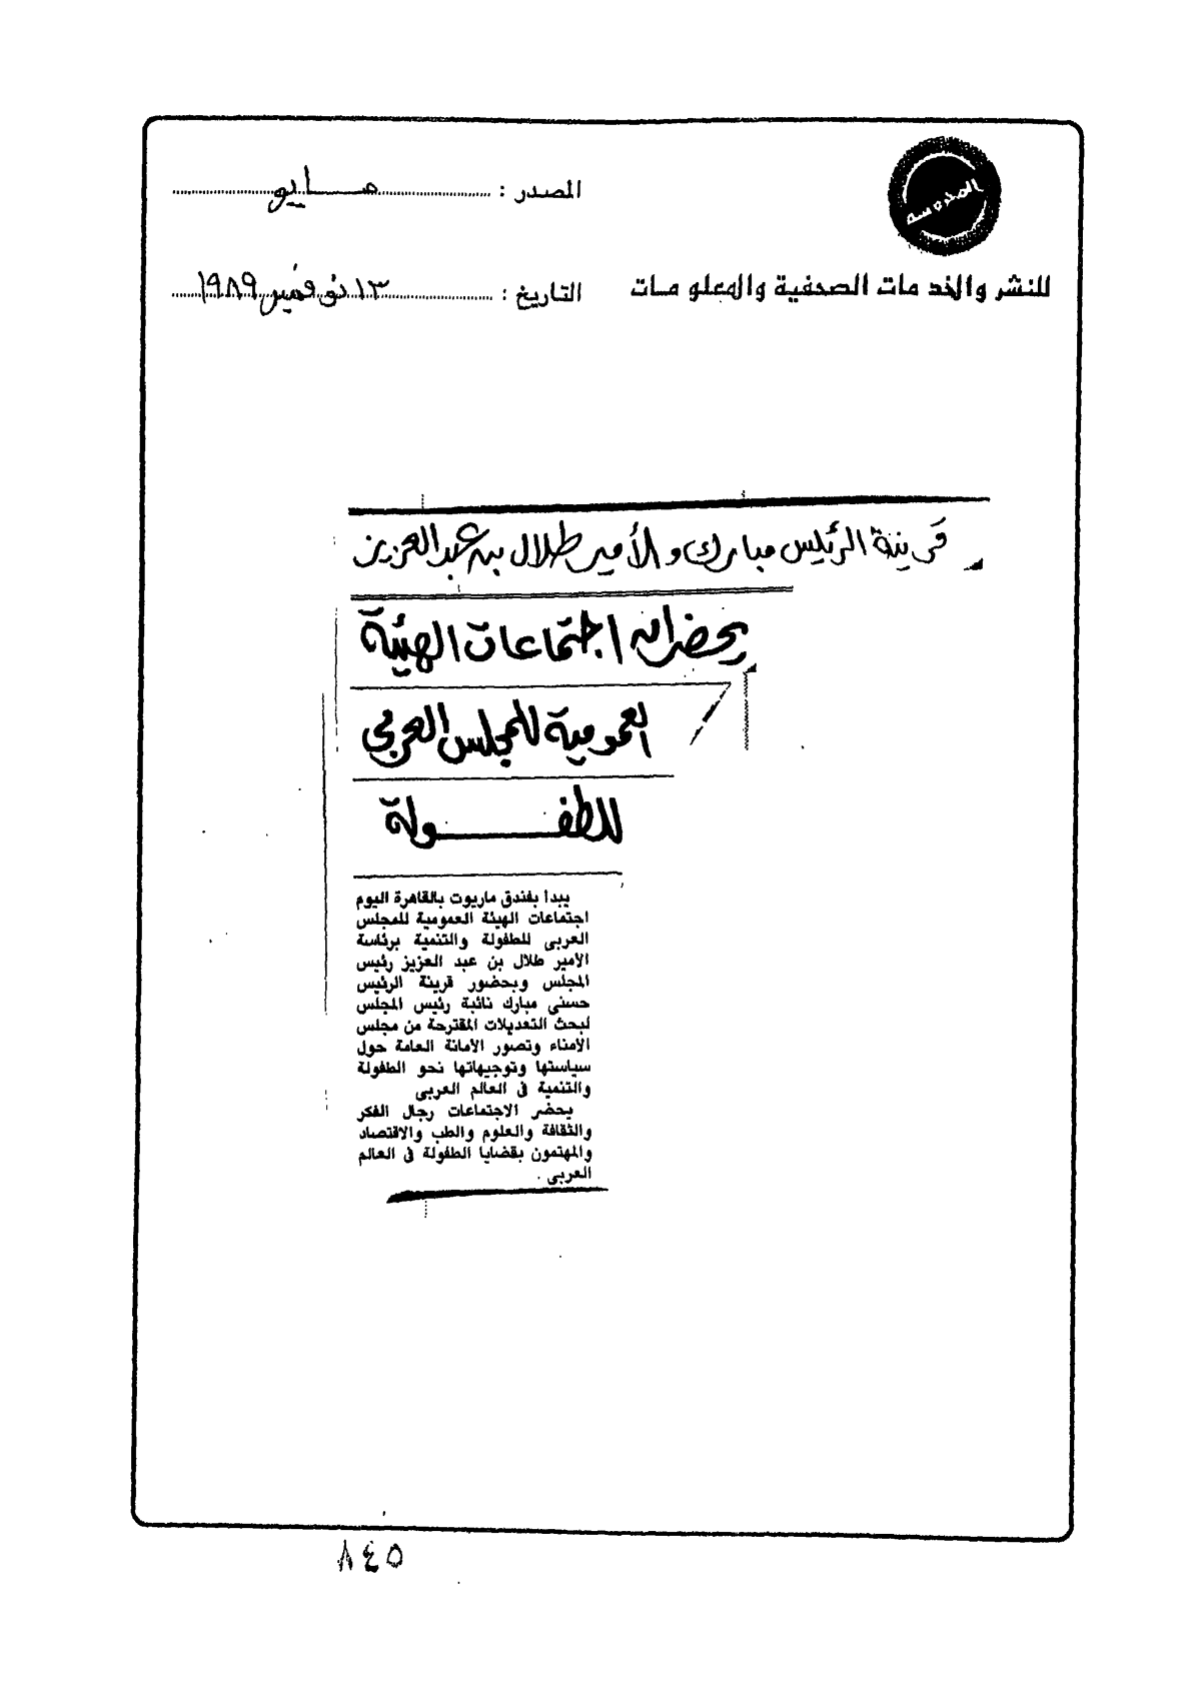 المحروسة
المصدر : مايو
للنشر والخدمات الصحفية والمعلومات
التاريخ : ١٣ نوفمبر ١٩٨٩
قرينة الرئيس مبارك والأمير طلال بن عبد العزيز
يحضران اجتماعات الهيئة
العمومية للمجلس العربي
للطفولة
يبدأ بفندق ماريوت بالقاهرة اليوم
اجتماعات الهيئة العمومية للمجلس
العربى للطفولة والتنمية برئاسة
الأمير طلال بن عبد العزيز رئيس
المجلس وبحضور قرينة الرئيس
حسنى مبارك نائبة رئيس المجلس
لبحث التعديلات المقترحة من مجلس
الأمناء وتصور الأمانة العامة حول
سياستها وتوجيهاتها نحو الطفولة
والتنمية فى العالم العربى
يحضر الاجتماعات رجال الفكر
والثقافة والعلوم والطب والاقتصاد
والمهتمون بقضايا الطفولة فى العالم
العربى .
٨٤٥